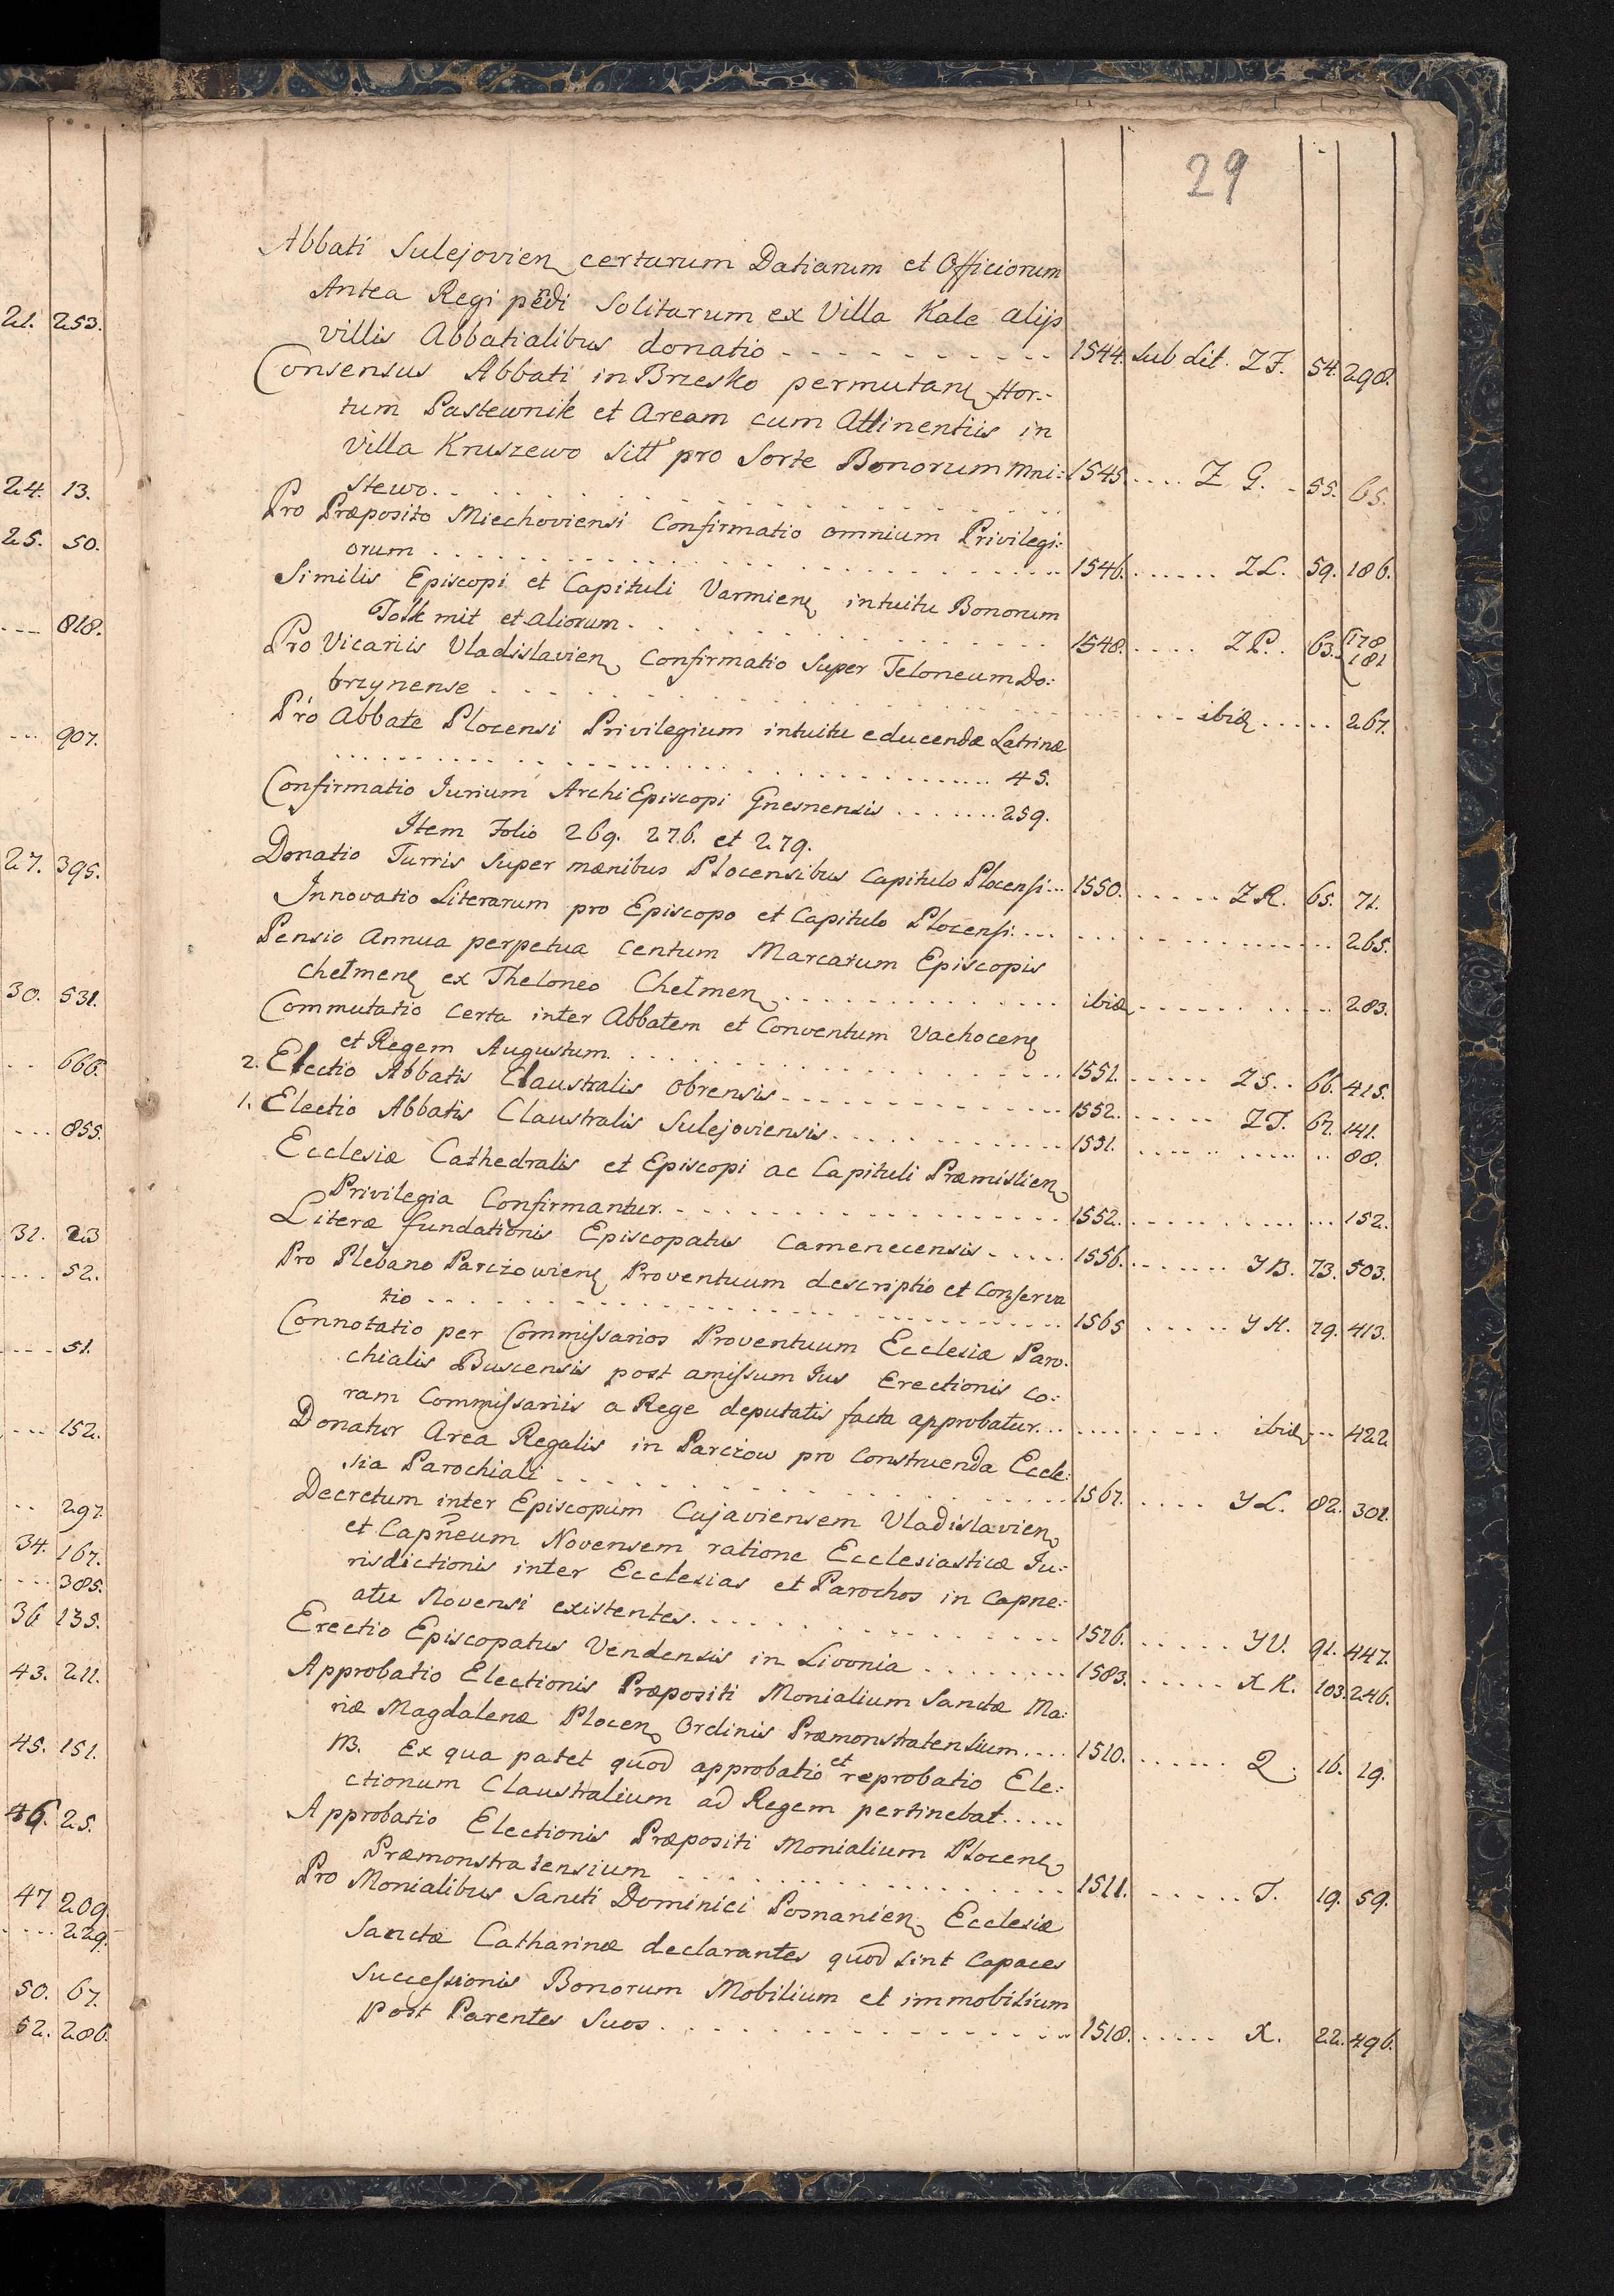 29
Abbati Sulejovien certarum Datiarum et Officiorum
Antea Regi pendi Solitarum ex Villa Kale alijs
villis Abbatialibus donatio - - - - - - - - - - 1544. sub Lit. ZF. 54. 298.
Consensus Abbati in Brzesko permutan Hor:
tum Pastewnik et Aream cum Attinentiis in
Villa Kruszewo Sitt pro Sorte Bonorum Mni: 1545. . . . . Z G. - 55. 65.
stewo. . . . . . . . . . . . . .
Pro Præposito Miechoviensi Confirmatio omnium Privilegi:
orum . . . . . . . . . . . . . . 1546. . . . . . . ZL. 59. 186.
Similis Episcopi et Capituli Varmien intuitu Bonorum
Tolkmit et aliorum . . . . . . . . . . . . 1548. . . . . ZP. 63. 178
181
Pro Vicariis Vladislavien Confirmatio Super Teloneum Do:
brzynense . . . . . . . . . . . . - - ibid . . . . . 267.
Pro Abbate Plocensi Privilegium intuitu educendæ Latrinæ
. . . . . . . . . . . . . . . . . . 45.
Confirmatio Iurium ArchiEpiscopi Gnesnensis . . . . . . . 259.
Item Folio 269. 276. et 279.
Donatio Turris super mænibus Plocensibus Capitulo Plocensi... 1550. . . . . . ZR. 65. 71.
Innovatio Literarum pro Episcopo et Capitulo Plocensi: . . . . . . . . . . . . . . 265.
Pensio Annua perpetua Centum Marcarum Episcopis
Chełmen ex Theloneo Chełmen . . . . . . . . . . . . . ibid - - - - - - . . . . 283.
Commutatio Certa inter Abbatem et Conventum Vachocen
et Regem Augustum. . . . . . . . . . . . . 1551. . . . . . ZS. . 66. 415.
2. Electio Abbatis Claustralis Obrensis - - - - - - - - - - - 1552. . . . . . ZT. 67. 141.
1. Electio Abbatis Claustralis Sulejoviensis. . . . . . . . . . 1551. . . . . . . . . . . . . 88.
Ecclesiæ Cathedralis et Episcopi ac Capituli Præmislien
Privilegia Confirmantur. - - - - - - - - - - - - - - - 1552. . . . . . . . . . . . . . . 152.
Literæ fundationis Episcopatus Camenecensis - . . . . 1556. . . . . . . . YB. 73. 503.
Pro Plebano Parczowien Proventuum descriptio et Conserva
tio . . . . . . . . . . . . . . . . . . . . 1565 . . . . . YK. 79. 413.
Connotatio per Commissarios Proventuum Ecclesiæ Paro:
chialis Buscensis post amissum Ius Erectionis co:
ram Commissariis a Rege deputatis facta approbatur. . . . . . . . . . . . . ibid . . . 422
Donatur Area Regalis in Parczow pro Construenda Eccle:
sia Parochiali . . . . . . . . . . . . . . . . 1567. . . . . YL. 82. 301.
Decretum inter Episcopum Cujaviensem Vladislavien
et Capneum Novensem ratione Ecclesiasticæ Iu:
risdictionis inter Ecclesias et Parochos in Capne:
atu Novensi existentes. . . . . . . . . . . . . . 1576. . . . . . YV. 91. 447.
Erectio Episcopatus Vendensis in Livonia . . . . . . . . 1583. . . . . . XK. 103. 246.
Approbatio Electionis Præpositi Monialium Sanctæ Ma:
riæ Magdalenæ Plocen Ordinis Præmonstratensium. . . . 1510. . . . . . . Q. 16. 19.
NB. Ex qua patet quod approbatio et reprobatio Ele:
ctionum Claustralium ad Regem pertinebat . . . . .
Approbatio Electionis Præpositi Monialium Plocen
Præmonstratensium . . . . . . . . . . . . . . . . 1511. . . . . . . T. 19. 59.
Pro Monialibus Sancti Dominici Posnanien Ecclesiæ
Sanctæ Catharinæ declarantes quod sint Capaces
Successionis Bonorum Mobilium et immobilium
Post Parentes Suos . . . . . . . . . . . . . . . 1518. . . . . . X. 22. 496.
21. 253.
24. 13.
25. 50.
- - - 818.
- - - 907.
27. 395.
30. 531.
- - 668.
- - - 855.
31. 23
. . . . 52.
- - - - 51.
- - - 152.
- - 297.
34. 167.
- - - 385.
36 135.
43. 211.
45. 151.
46. 25.
47 209.
. . . . 229.
50. 67.
52. 286.